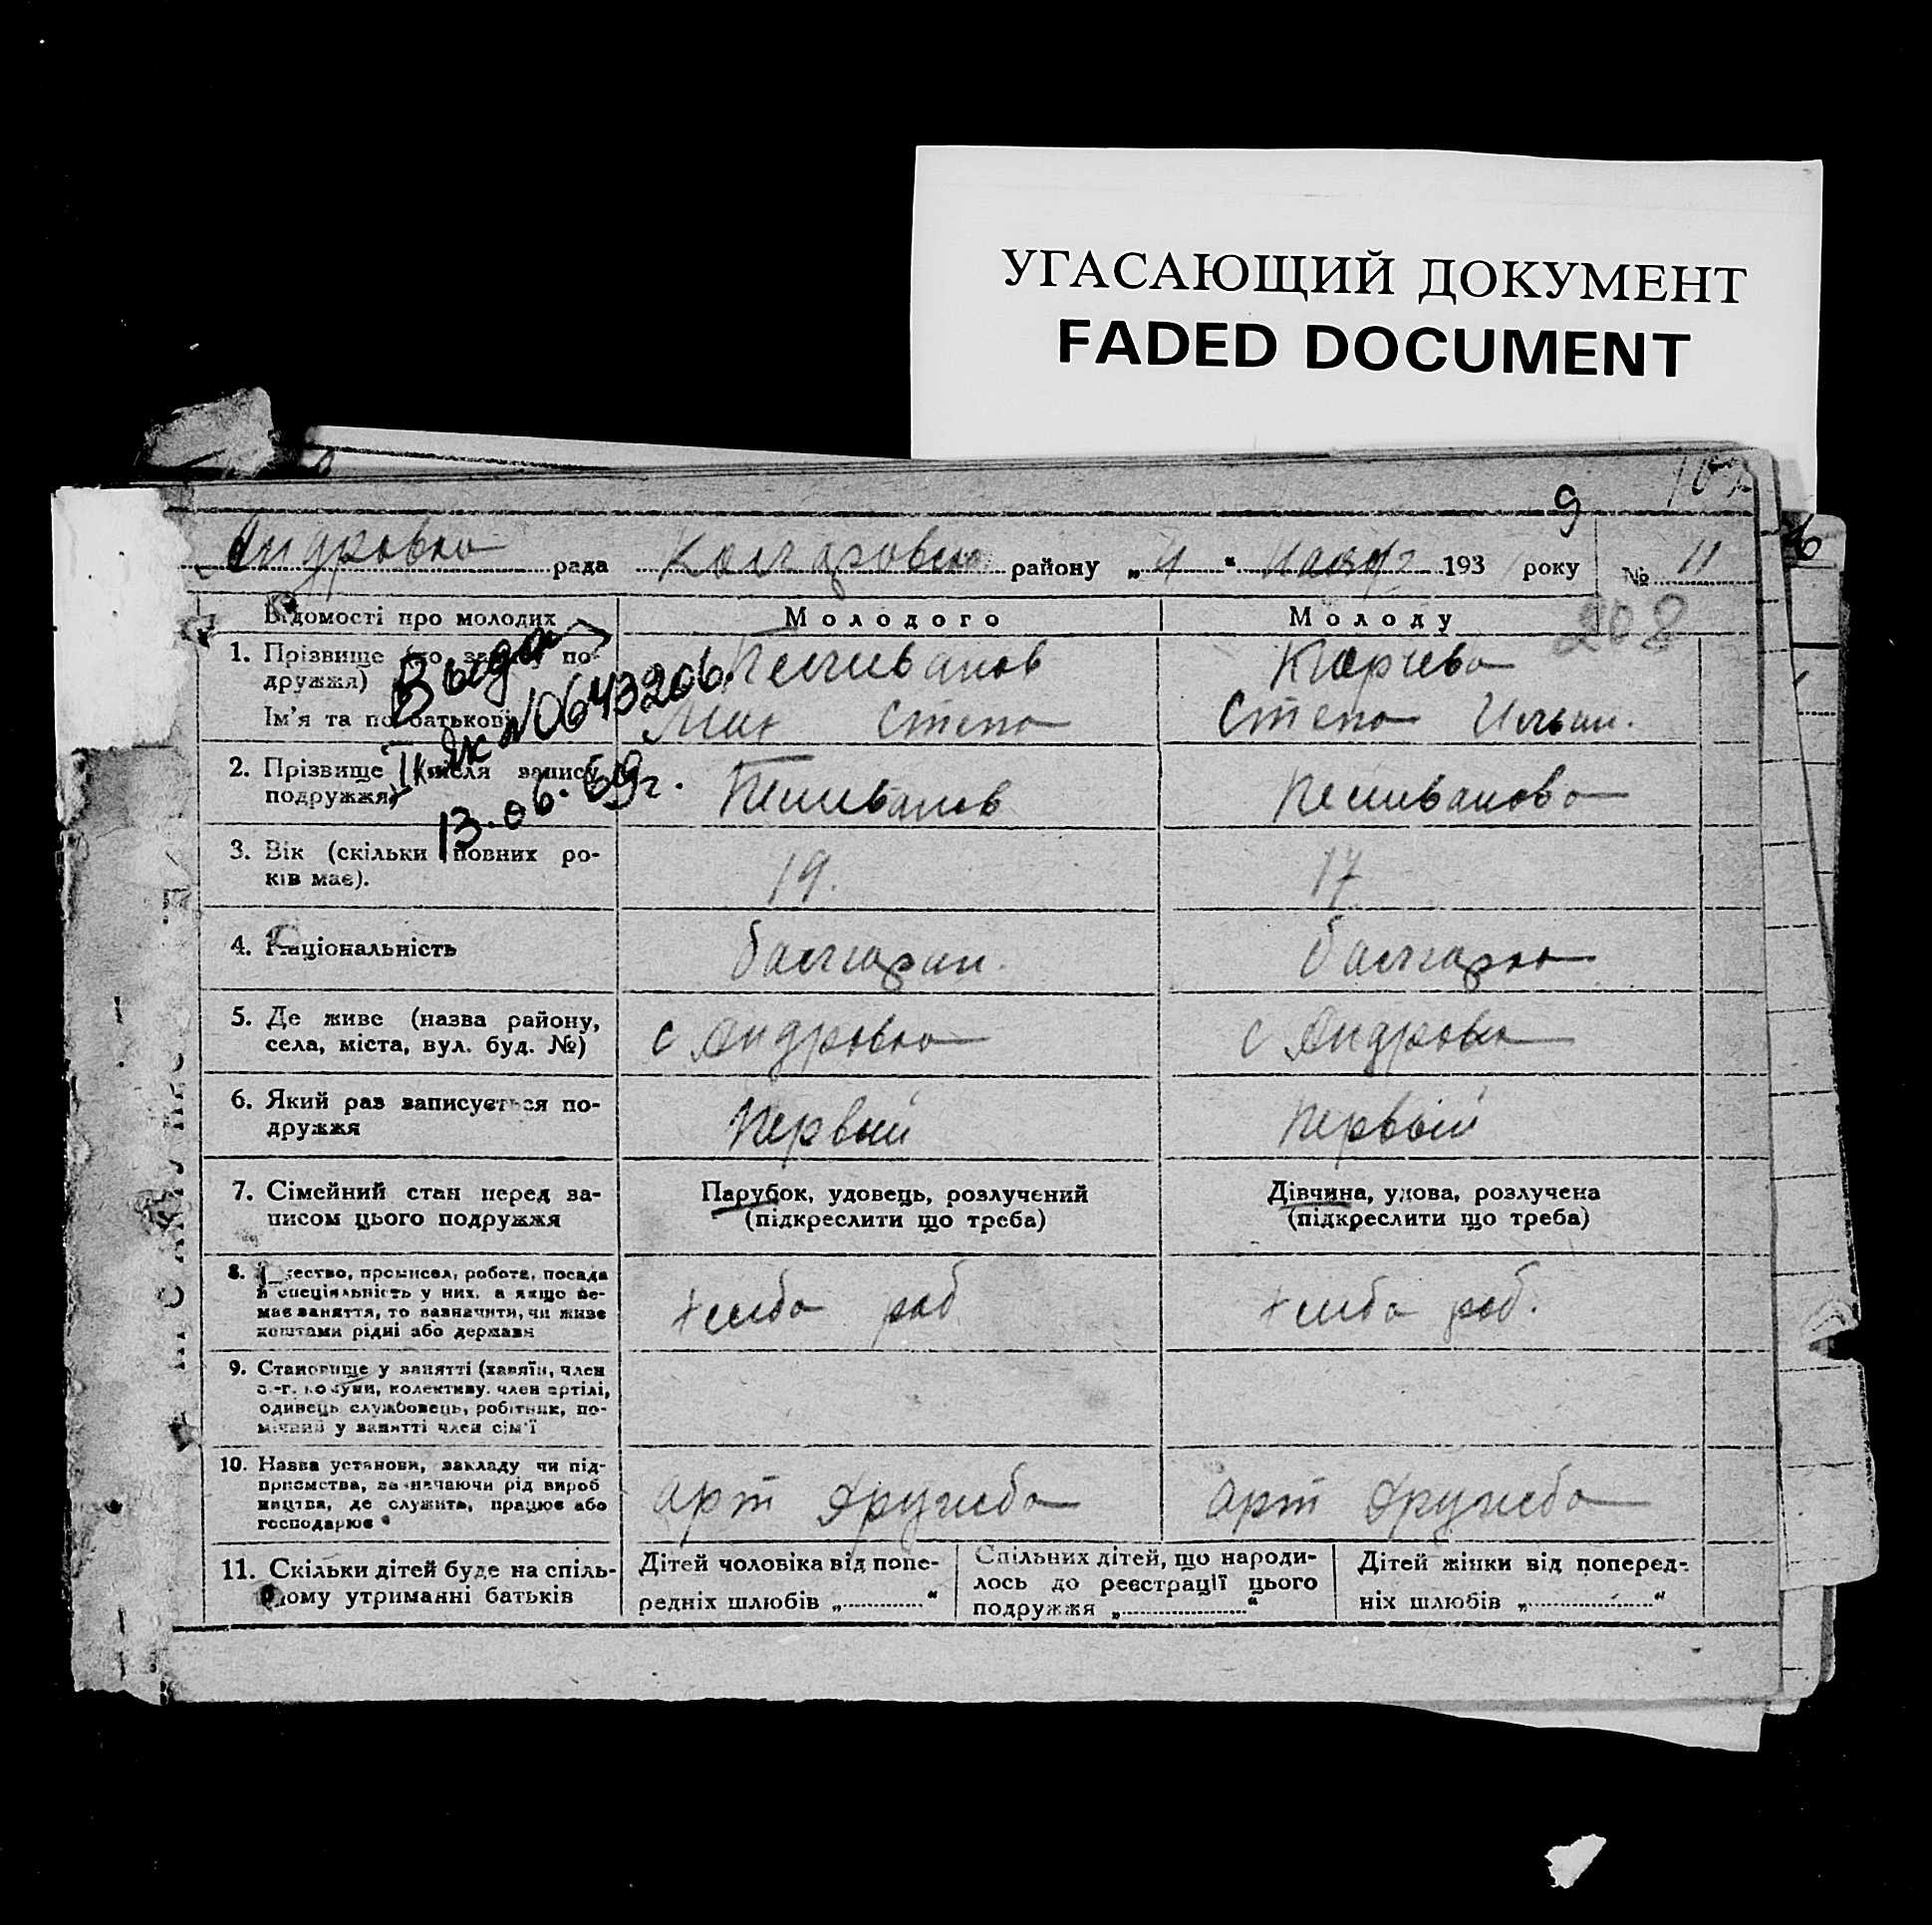 УГАСАЮЩИЙ ДОКУМЕНТ
FADED DOCUMENT
9
Андровка рада района району „4“ 193 року № 11
208
Відомості про молодих Молодого Молоду
1. Прізвище (до запису по-
дружжя)
Ім'я та по батькові
Пеливанов
Степа
Степа Ильин.
Выдан
№ 0643206.
13.06.69г.
2. Прізвище після запису
подружжя)
Пеливанов Пеливанова
3. Вік (скільки повних ро-
ків має).
19. 17
4. Національність
болгарин. болгарка
5. Де живе (назва району,
села, міста, вул. буд. №)
с Андровка с Андровка
6. Який раз записується по-
дружжя
Первый Первый
7. Сімейний стан перед за-
писом цього подружжя
Парубок, удовець, розлучений
(підкреслити що треба)
Дівчина, удова, розлучена
(підкреслити що треба)
8. промисел, робота, посада
й спеціяльність у них, а якщо не-
має заняття, то зазначити, чи живе
коштами рідні або держави
хлиба роб хлиба роб.
9. Становище у занятті (хазяїн, член
с.-г. комуни, колективу, член артілі,
одинець службовець, робітник, по-
мічний у занятті член сім'ї
10. Назва установи, закладу чи під-
приємства, зазначаючи рід вироб
ництва, де служить, працює або
господарює
арт Дружба арт Дружба
11. Скільки дітей буде на спіль-
ному утриманні батьків
Дітей чоловіка від попе-
редніх шлюбів „ “
Спільних дітей, що народи-
лось до реєстрації цього
подружжя „ “
Дітей жінки від поперед-
ніх шлюбів „ “